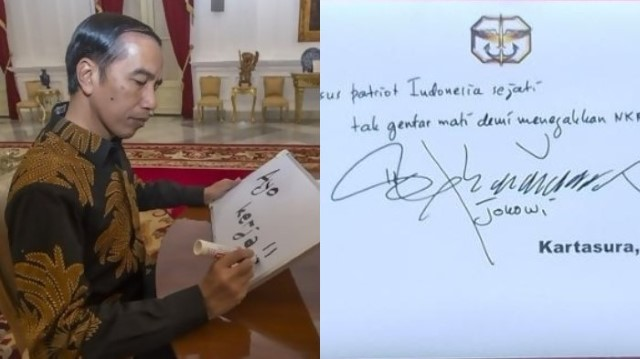 Ayo
kerja!!
sus patriot Indonesia sejati
tak gentar mati demi menegakkan NKR
Jokowi
Kartasura,